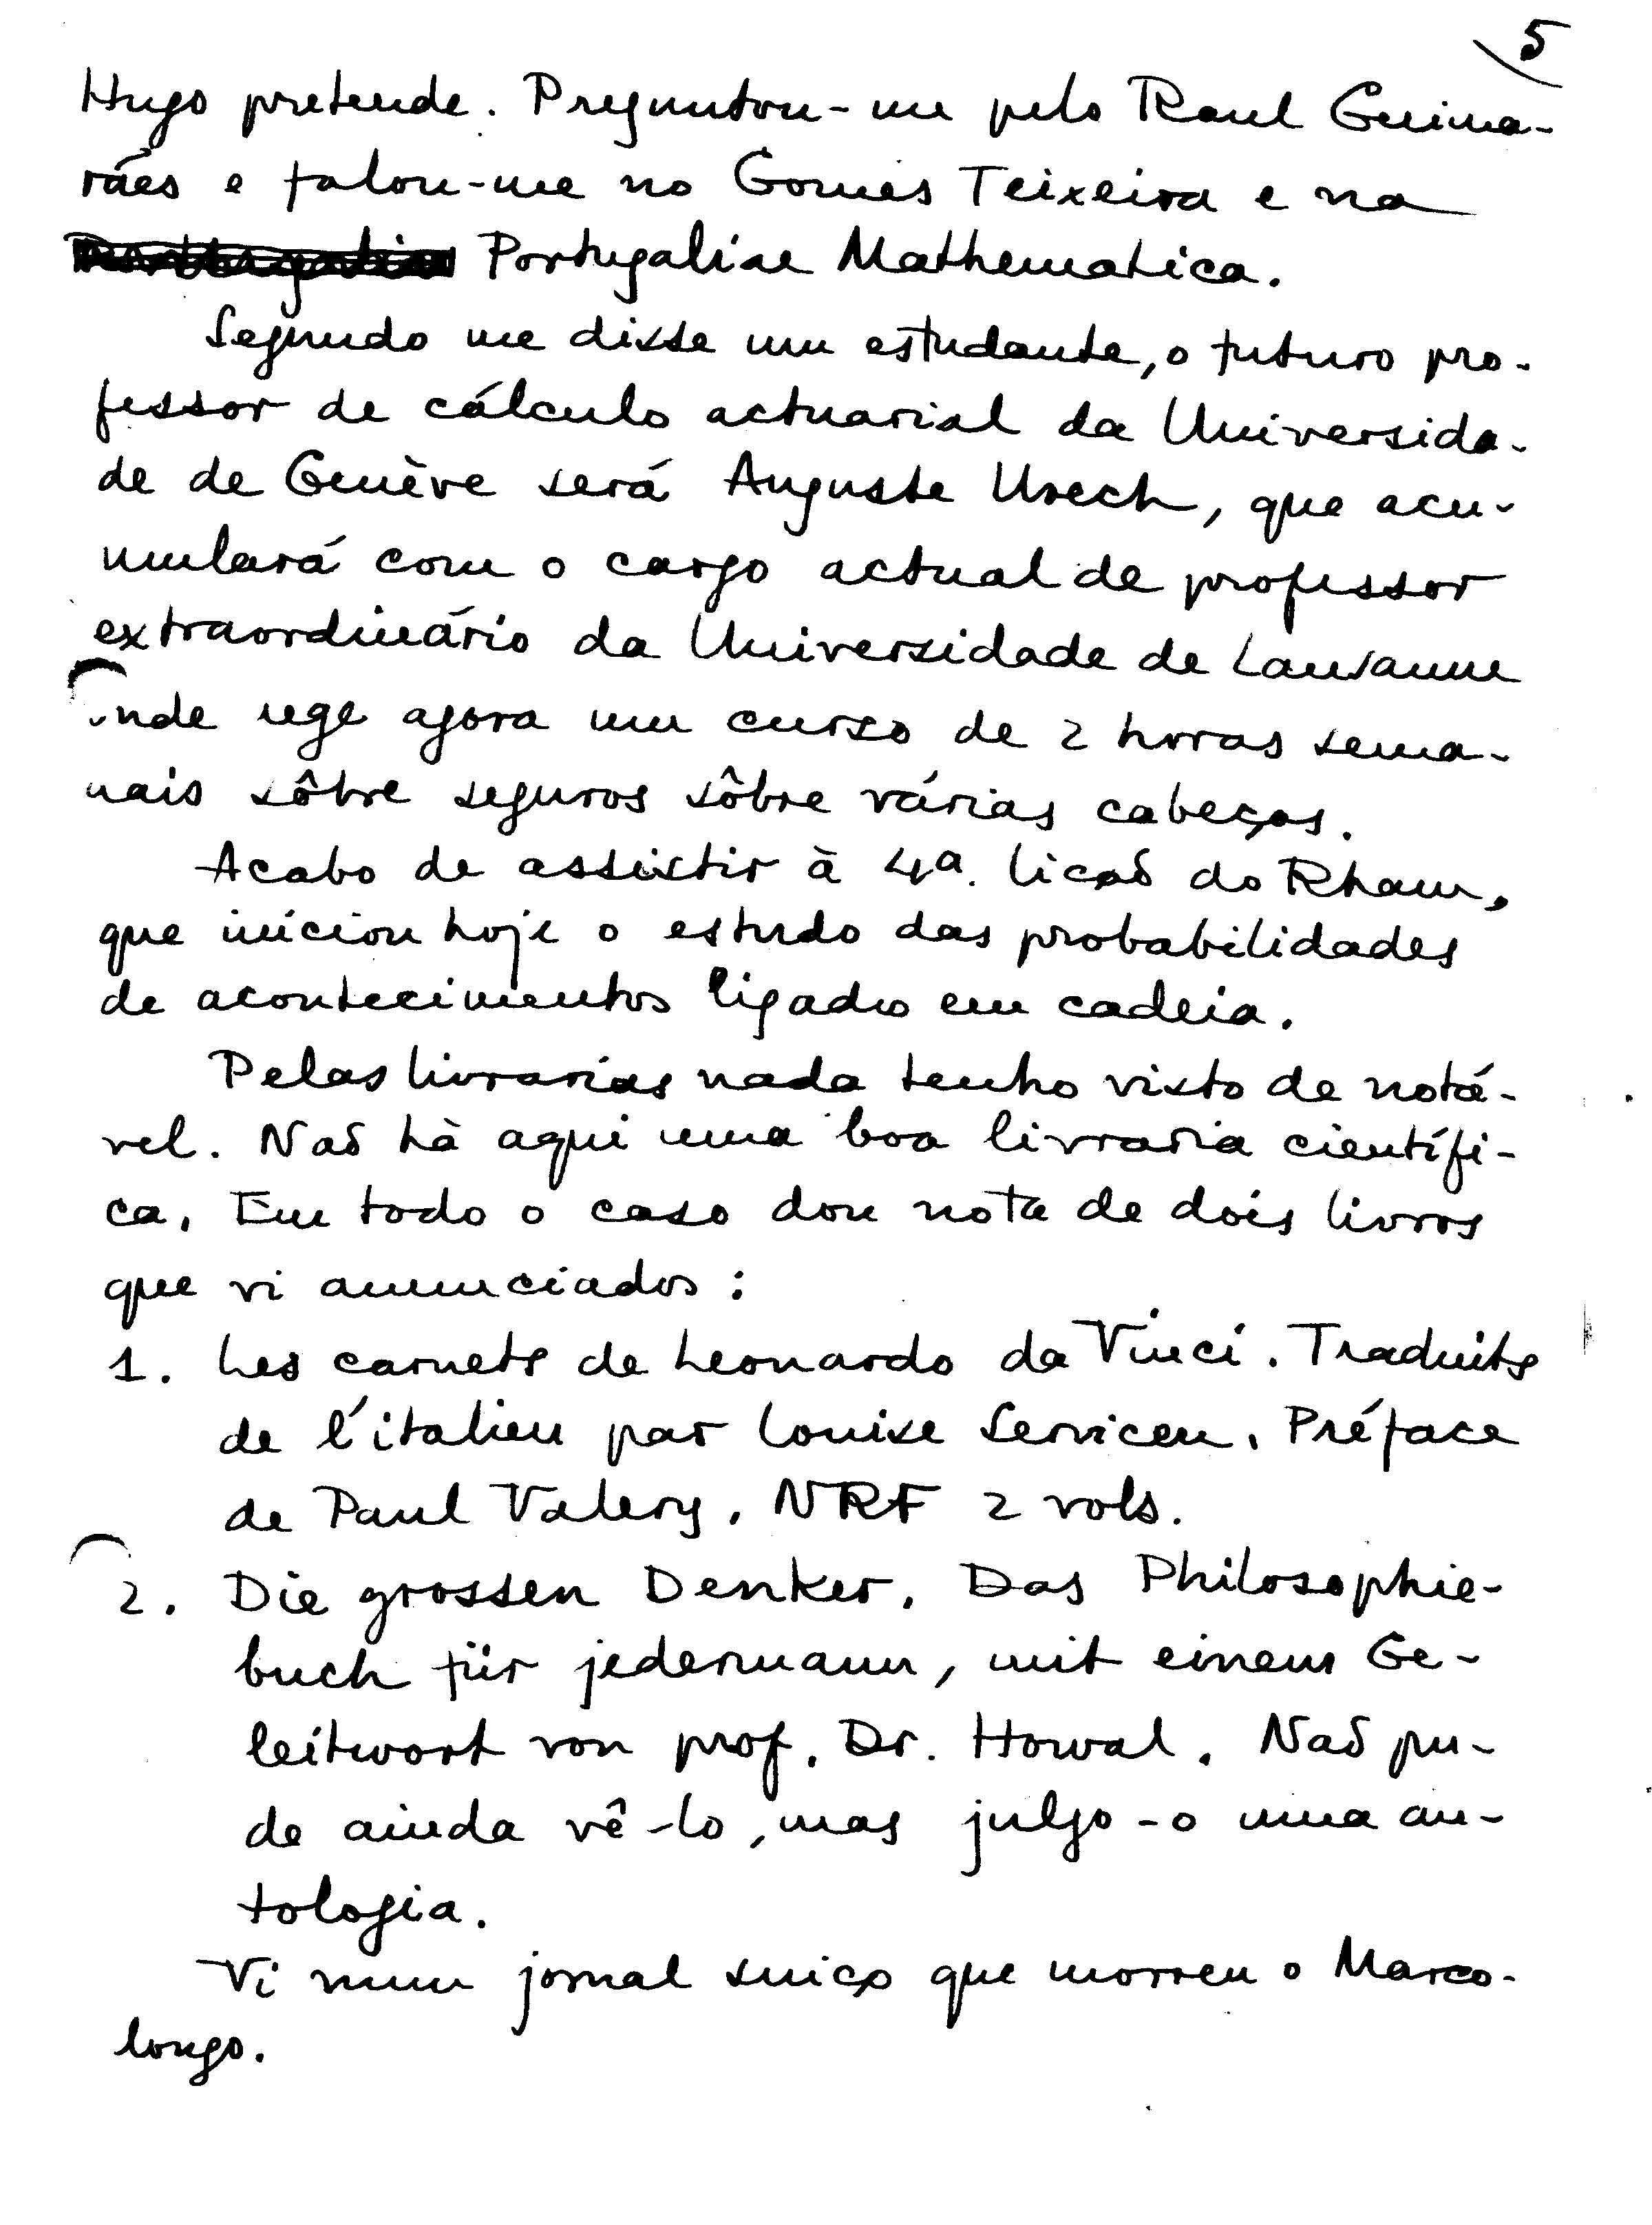 5
Hugo pretende. Preguntou-me pelo Raul Guima-
rães e falou-me no Gomes Teixeira e na
Portugaliae Mathematica.
Segundo me disse um estudante, o futuro pro-
fessor de cálculo actuarial da Universida-
de de Genève será Auguste Urech, que acu-
mulará com o cargo actual de professor
extraordinário da Universidade de Lausanne
onde rege agora um curso de 2 horas sema-
nais sôbre seguros sôbre várias cabeças.
Acabo de assistir à 4a. licaõ do Rham,
que iniciou hoje o estudo das probabilidades
de acontecimentos ligados em cadeia.
Pelas livrarias nada tenho visto de notá-
vel. Naõ hà aqui uma boa livraria científi-
ca. Em todo o caso dou nota de dois livros
que vi anunciados:
1. Les carnets de Leonardo da Vinci. Traduits
de l'italien par Louise Servicen. Préface
de Paul Valery. NRF 2 vols.
2. Die grossen Denker. Das Philosophie-
buch für jedermann, mit einem Ge-
leitwort von prof. Dr. Howal. Naõ pu-
de ainda vê-lo, mas julgo-o uma an-
tologia.
Vi num jornal suiço que morreu o Marco-
longo.